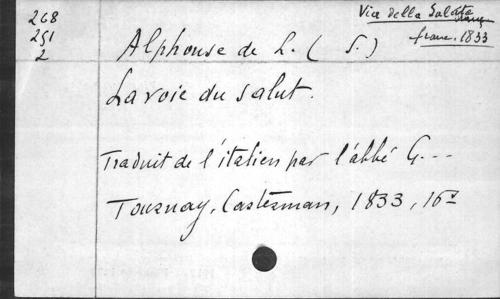 268
251
2
Via della Salute
franç. 1833
Alphonse de L. ( S. )
La voie du salut.
Traduit de l'italien par l'abbé G...
Tournay, Casterman, 1833, 16º